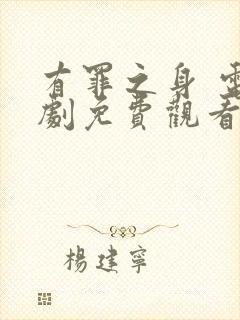 有罪之身 電
劇免費觀看
楊建寧